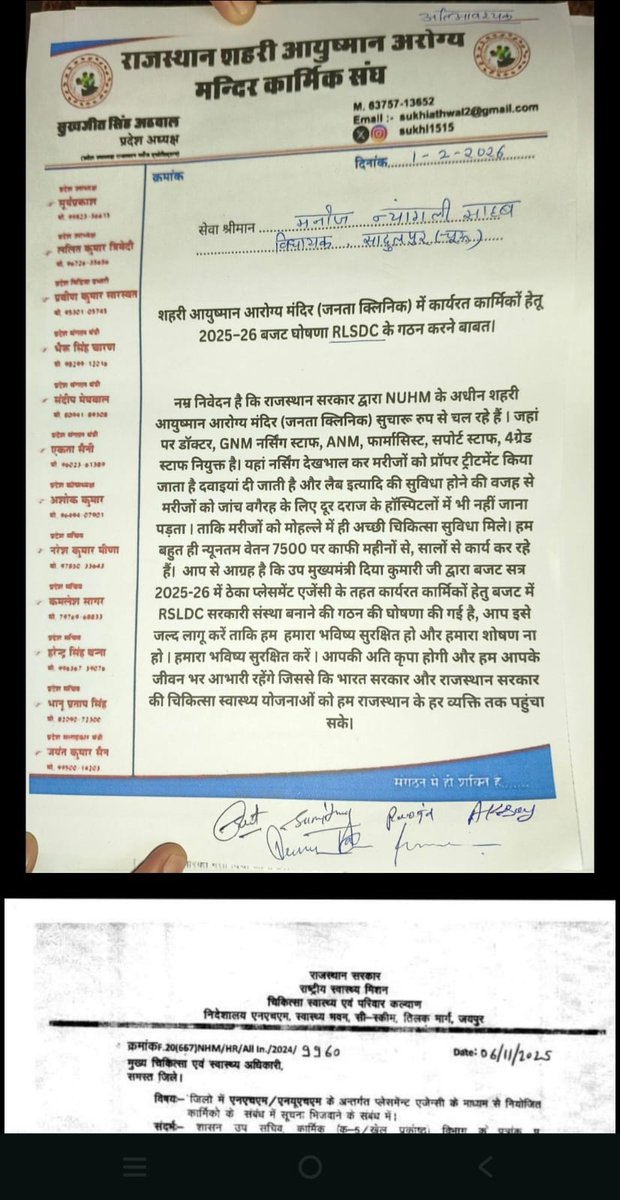 अतिआवश्यक
राजस्थान शहरी आयुष्मान आरोग्य
मन्दिर कार्मिक संघ
सुखजीत सिंह अठवाल
प्रदेश अध्यक्ष
M. 63757-13652
Email :- sukhiathwal2@gmail.com
sukhi1515
क्रमांक
दिनांक 1-2-2026
सेवा श्रीमान मनोज न्यांगली साहब
विधायक, सादुलपुर (चूरू)
प्रदेश उपाध्यक्ष
सूर्यप्रकाश
प्रदेश उपाध्यक्ष
ललित कुमार त्रिवेदी
प्रदेश मिडिया प्रभारी
प्रवीण कुमार सारस्वत
मो. 95301-05745
प्रदेश संगठन मंत्री
भैरू सिंह चारण
प्रदेश संगठन मंत्री
संदीप मेघवाल
प्रदेश संगठन मंत्री
एकता सैनी
मो. 96023-61389
प्रदेश कोषाध्यक्ष
अशोक कुमार
मो. 96494-07901
प्रदेश सचिव
नरेश कुमार मीणा
मो. 97850-33643
प्रदेश सचिव
कमलेश सागर
मो. 79769-68833
प्रदेश सचिव
हरेन्द्र सिंह
प्रदेश सचिव
भानु प्रताप सिंह
प्रदेश सलाहकार मंत्री
जयंत कुमार सैन
शहरी आयुष्मान आरोग्य मंदिर (जनता क्लिनिक) में कार्यरत कार्मिकों हेतू
2025-26 बजट घोषणा RLSDC के गठन करने बाबत।
नम्र निवेदन है कि राजस्थान सरकार द्वारा NUHM के अधीन शहरी
आयुष्मान आरोग्य मंदिर (जनता क्लिनिक) सुचारू रुप से चल रहे हैं। जहां
पर डॉक्टर, GNM नर्सिंग स्टाफ, ANM, फार्मासिस्ट, सपोर्ट स्टाफ, 4ग्रेड
स्टाफ नियुक्त है। यहां नर्सिंग देखभाल कर मरीजों को प्रॉपर ट्रीटमेंट किया
जाता है दवाइयां दी जाती है और लैब इत्यादि की सुविधा होने की वजह से
मरीजों को जांच वगैरह के लिए दूर दराज के हॉस्पिटलों में भी नहीं जाना
पड़ता। ताकि मरीजों को मोहल्ले में ही अच्छी चिकित्सा सुविधा मिले। हम
बहुत ही न्यूनतम वेतन 7500 पर काफी महीनों से, सालों से कार्य कर रहे
हैं। आप से आग्रह है कि उप मुख्यमंत्री दिया कुमारी जी द्वारा बजट सत्र
2025-26 में ठेका प्लेसमेंट एजेंसी के तहत कार्यरत कार्मिकों हेतु बजट में
RSLDC सरकारी संस्था बनाने की गठन की घोषणा की गई है, आप इसे
जल्द लागू करें ताकि हम हमारा भविष्य सुरक्षित हो और हमारा शोषण ना
हो। हमारा भविष्य सुरक्षित करें। आपकी अति कृपा होगी और हम आपके
जीवन भर आभारी रहेंगे जिससे कि भारत सरकार और राजस्थान सरकार
की चिकित्सा स्वास्थ्य योजनाओं को हम राजस्थान के हर व्यक्ति तक पहुंचा
सके।
संगठन में ही शक्ति है
राजस्थान सरकार
राष्ट्रीय स्वास्थ्य मिशन
चिकित्सा स्वास्थ्य एवं परिवार कल्याण
निदेशालय एनएचएम, स्वास्थ्य भवन, सी-स्कीम, तिलक मार्ग, जयपुर
क्रमांक F.20(667)NHM/HR/All In./2024/ 9960 Date: 06/11/2025
मुख्य चिकित्सा एवं स्वास्थ्य अधिकारी,
समस्त जिले।
विषय:- जिलो में एनएचएम/एनयूएचएम के अन्तर्गत प्लेसमेन्ट एजेन्सी के माध्यम से नियोजित
कार्मिको के संबंध में सूचना भिजवाने के संबंध में।
संदर्भ:- शासन उप सचिव, कार्मिक (क-5/खेल प्रकोष्ठ) विभाग के पत्रांक